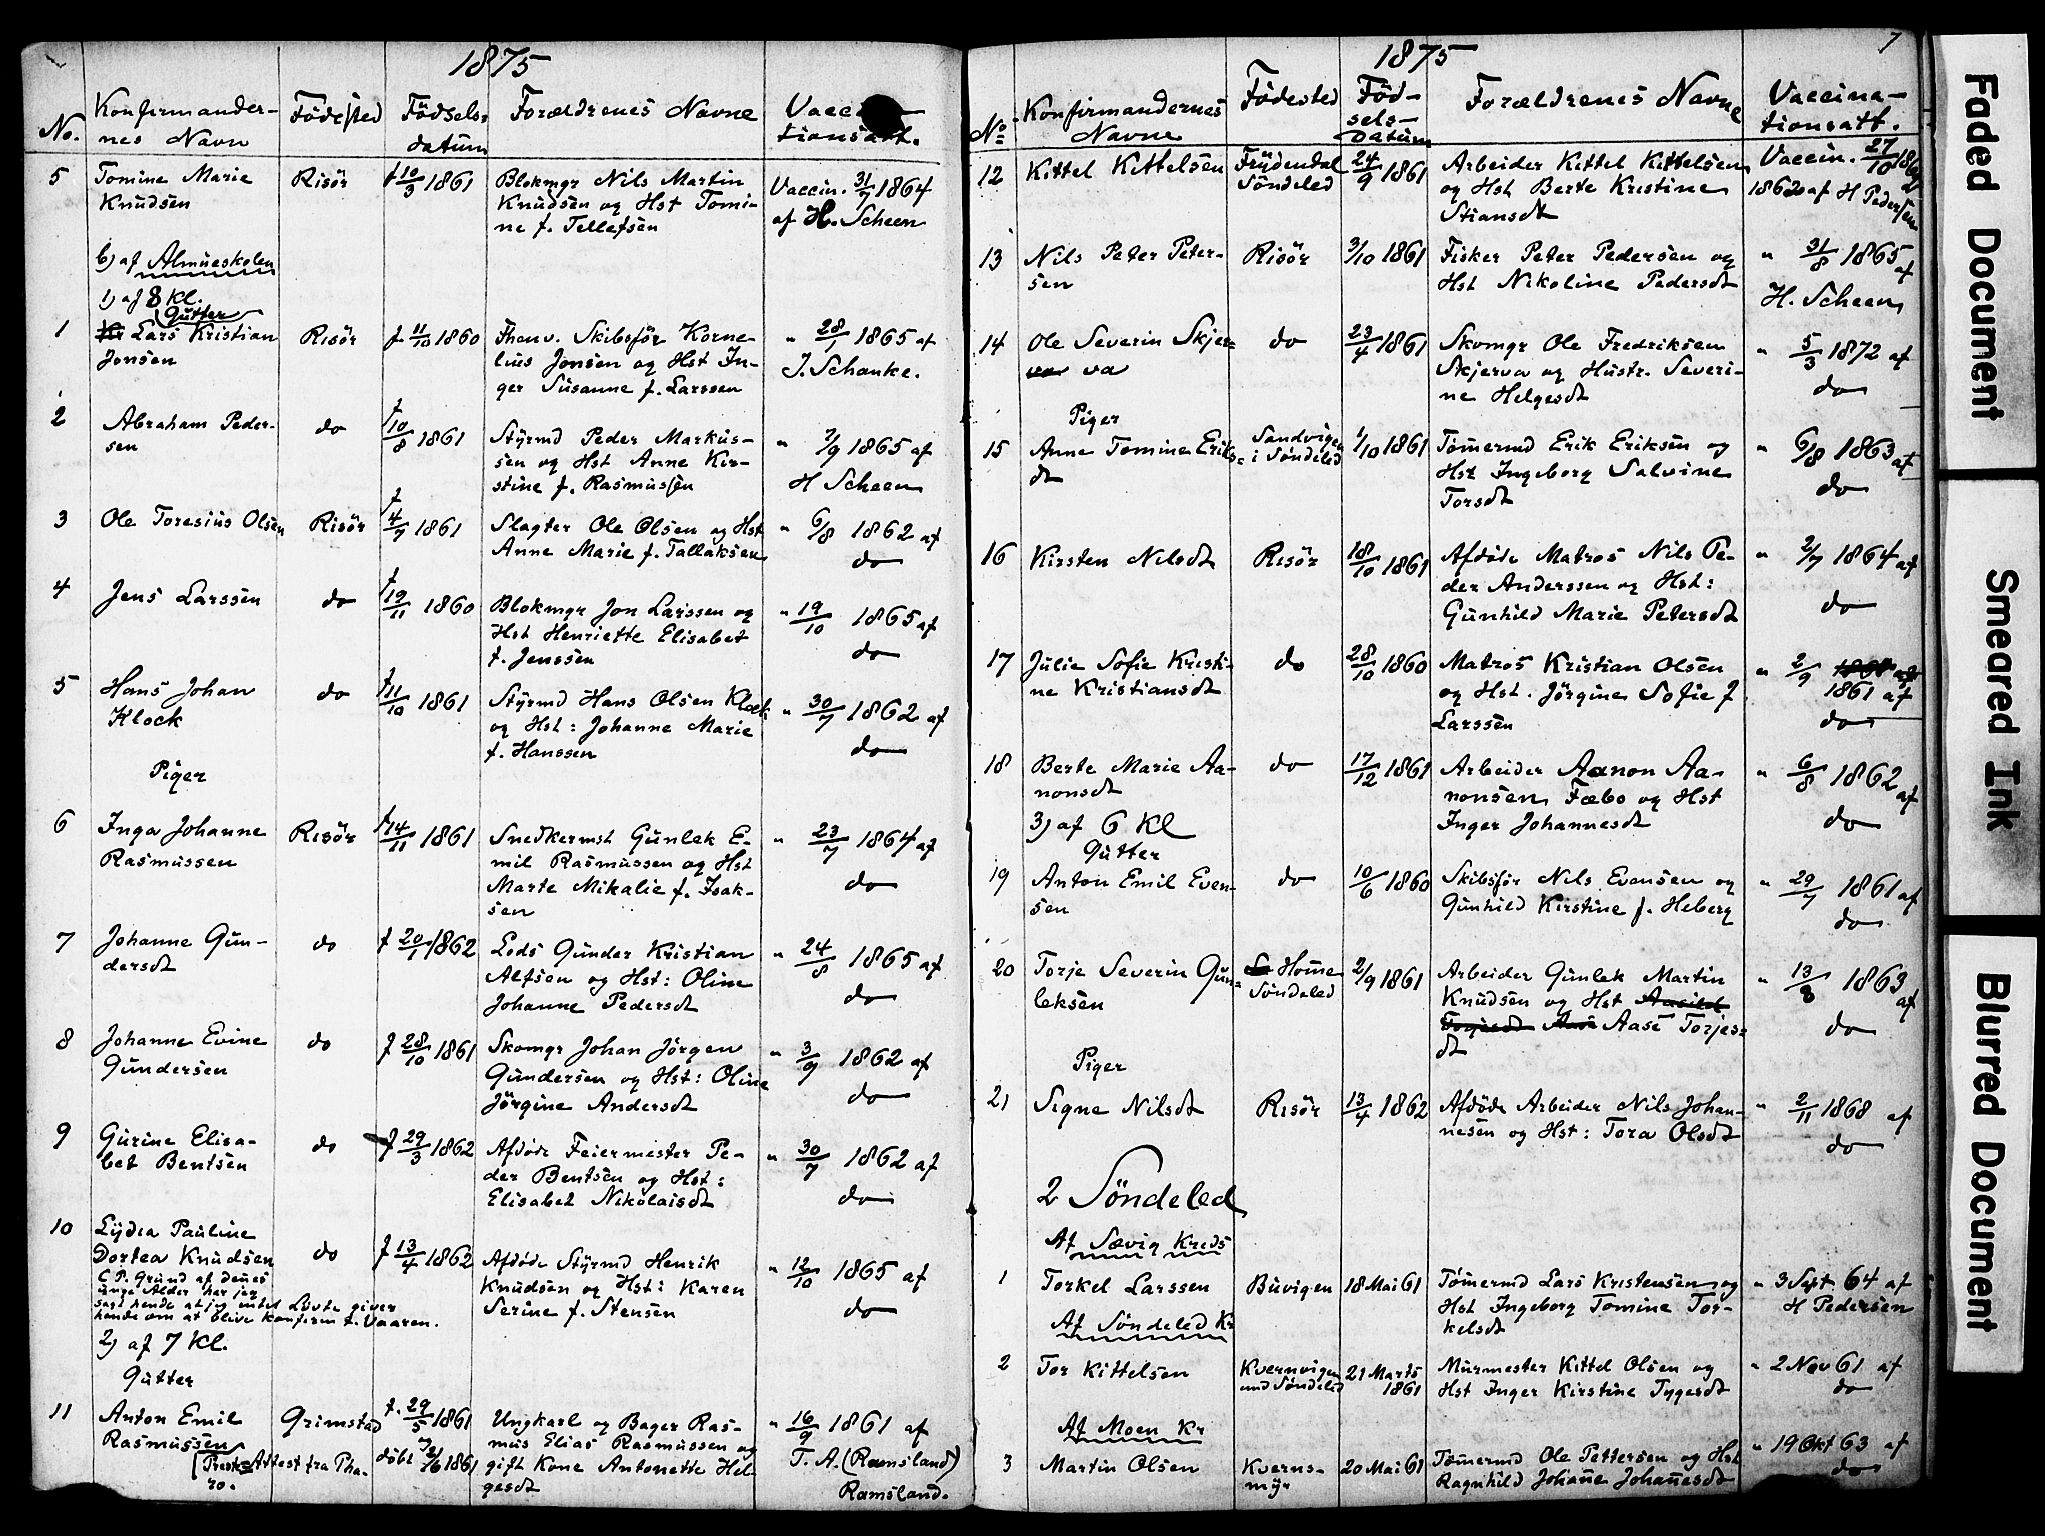 1875
No.
Konfirmander-
nes Navn
Födested
Födsels-
datum
Forældrenes Navne
tionsatt.
5
Tomine Marie
Knudsen
Risör
f 10/3 1861
Blokmgr Nils Martin
Knudsen og Hst Tomi-
ne f. Tellefsen
Vaccin. 31/7 1864
af H. Scheen
b) af Almueskolen
1) af 8 Kl.
Gutter
1
Lars Kristian
Jensen
Risör
f 11/10 1860
Skibsför Korne-
lius Jensen og Hst In-
ger Susanne f. Larssen
" 28/1 1865 af
J. Schanke.
2
Abraham Peder-
sen
do
f 10/8 1861
Styrmd Peder Markus-
sen og Hst Anne Kir-
stine f. Rasmussen
" 7/9 1865 af
H Scheen
3
Ole Toresius Olsen
Risör
f 4/7 1861
Slagter Ole Olsen og Hst
Anne Marie f. Tallaksen
" 6/8 1862 af
do
4
Jens Larssen
do
f 19/11 1860
Blokmgr Jon Larssen og
Hst Henriette Elisabet
f. Jenssen
" 19/10 1865 af
do
5
Hans Johan
Klock
do
f 11/10 1861
Styrmd Hans Olsen Klock
og Hst: Johanne Marie
f. Hanssen
" 30/7 1862 af
do
Piger
6
Inga Johanne
Rasmussen
Risör
f 14/11 1861
Snedkermst Gunlek E-
mil Rasmussen og Hst
Marte Mikalie f. Isak-
sen
" 23/7 1864 af
do
7
Johanne Gun-
dersdt
do
f 20/1 1862
Lods Gunder Kristian
Alfsen og Hst: Oline
Johanne Pedersdt
" 24/8 1865 af
do
8
Johanne Evine
Gundersen
do
f 28/10 1861
Skomgr Johan Jörgen
Gundersen og Hst: Oline
Jörgine Andersdt
" 3/9 1862 af
do
9
Gurine Elisa-
bet Bentsen
do
f 29/3 1862
Afdöde Feiermester Pe-
der Bentsen og Hst:
Elisabet Nikolaisdt
" 30/7 1862 af
do
10
Lydia Pauline
Dortea Knudsen
do
f 13/4 1862
Afdöde Styrmd Henrik
Knudsen og Hst: Karen
Serine f. Stensen
" 12/10 1865 af
do
Grund af denes
unge Alder har jeg
sagt hende at jeg intet Lövte giver
hende om at blive konfirm t. Vaaren.
2) af 7 Kl.
Gutter
11
Anton Emil
Rasmussen
Grimstad
f. 29/5 1861
döbt 7/6 1861
Ungkarl og Bager Ras-
mus Elias Rasmussen og
gift Kone Antonette Hel-
gesdt
" 16/9 1861 af
T. A. (Ramsland)
Ramsland.
Attest fra
1875
7
No
Konfirmandernes
Navne
Födested
Föd-
sels-
Datum
Forældrenes Navne
Vaccina-
tionsatt.
12
Kittel Kittelsen
Fröydendal
Söndeled
24/9 1861
Arbeider Kittel Kittelsen
og Hst Berte Kristine
Stiansdt
Vaccin. 27/10
1862 af H Pedersen
13
Nils Peter Peter-
sen
Risör
3/10 1861
Fisker Peter Pedersen og
Hst Nikoline Pedersdt
" 31/8 1865 af
H. Scheen
14
Ole Severin Skjer-
va
do
23/4 1861
Skomgr Ole Fredriksen
Skjerva og Hustr. Severi-
ne Helgesdt
" 5/3 1872 af
do
Piger
15
Anne Tomine Eriks-
dt
Sandvigen
i Söndeled
1/10 1861
Tömermd Erik Eriksen og
Hst Ingeborg Salvine
Torsdt
" 6/8 1863 af
do
16
Kirsten Nilsdt
Risör
18/10 1861
Afdöde Matros Nils Pe-
der Anderssen og Hst:
Gunhild Marie Petersdt
" 2/7 1864 af
do
17
Julie Sofie Kristi-
ne Kristiansdt
do
28/10 1860
Matros Kristian Olsen
og Hst. Jörgine Sofie f
Larssen
" 2/9
1861 af
do
18
Berte Marie Aa-
nonsdt
do
17/12 1861
Arbeider Aanon Aa-
nonsen Fæbo og Hst
Inger Johannesdt
" 6/8 1862 af
do
3) af 6 Kl
Gutter
19
Anton Emil Even-
sen
do
10/6 1860
Skibsför Nils Evensen og
Gunhild Kirstine f. Heberg
" 29/7 1861 af
do
20
Torje Severin Gun-
leksen
Home
Söndeled
2/9 1861
Arbeider Gunlek Martin
Knudsen og Hst
Aase Torjes-
dt
" 13/8 1863 af
do
Piger
21
Signe Nilsdt
Risör
13/4 1862
Afdöde Arbeider Nils Johan-
nesen og Hst: Tora Olsdt
" 2/11 1868 af
do
2 Söndeled
Af Sævig Kreds
1
Torkel Larssen
Buvigen
18 Mai 61
Tömermd Lars Kristensen og
Hst Ingeborg Tomine Tor-
kelsdt
" 3 Sept 64 af
H Pedersen
Af Söndeled Kr
2
Tor Kittelsen
Kvernvigen
und Söndeled
21 Marts
1861
Murmester Kittel Olsen og
Hst Inger Kirstine Tygesdt
" 2 Nov 61 af
do
Af Moen Kr
3
Martin Olsen
Kverns-
myr
20 Mai 61
Tömermd Ole Pettersen og Hst
Ragnhild Johanne Johannesdt
" 19 Okt 63 af
do
Faded Document
Smeared Ink
Blurred Document